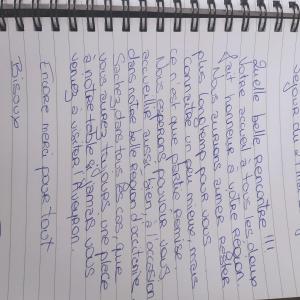 Séjour du
Quelle belle rencontre !!!
Votre accueil à tous les deux
fait honneur à votre région.
Nous aurions aimer rester
plus longtemp pour vous
connaître un peu mieux, mais
ce n'est que partie remise
Nous espérons pouvoir vous
accueillir aussi bien, à l'occasion
dans notre belle région d'occitanie.
Sachez dans tous les cas, que
vous aurez toujours une place
à notre table si jamais vous
venez à visiter l'Aveyron.
Encore merci pour tout
Bisous